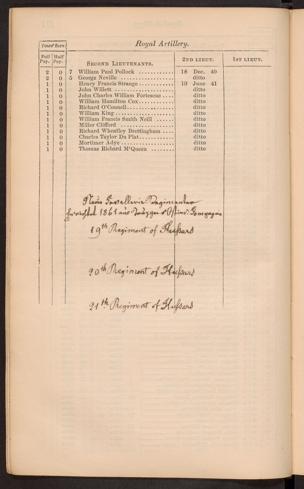 Royal Artillery.
Years' Serv.
Full Pay. Half Pay. SECOND LIEUTENANTS. 2ND LIEUT. 1ST LIEUT.
2 0 7 William Paul Pollock 18 Dec. 40
2 0 5 George Neville ditto
1 0 Henry Francis Strange 19 June 41
1 0 John Willett ditto
1 0 John Charles William Fortescue ditto
1 0 William Hamilton Cox ditto
1 0 Richard O'Connell ditto
1 0 William King ditto
1 0 William Francis Smith Neill ditto
1 0 Miller Clifford ditto
1 0 Richard Wheatley Brettingham ditto
1 0 Charles Taylor Du Plat ditto
1 0 Mortimer Adye ditto
1 0 Thomas Richard M'Queen ditto
1861
19th Regiment of Hussars
20th Regiment of Hussars
21th Regiment of Hussars